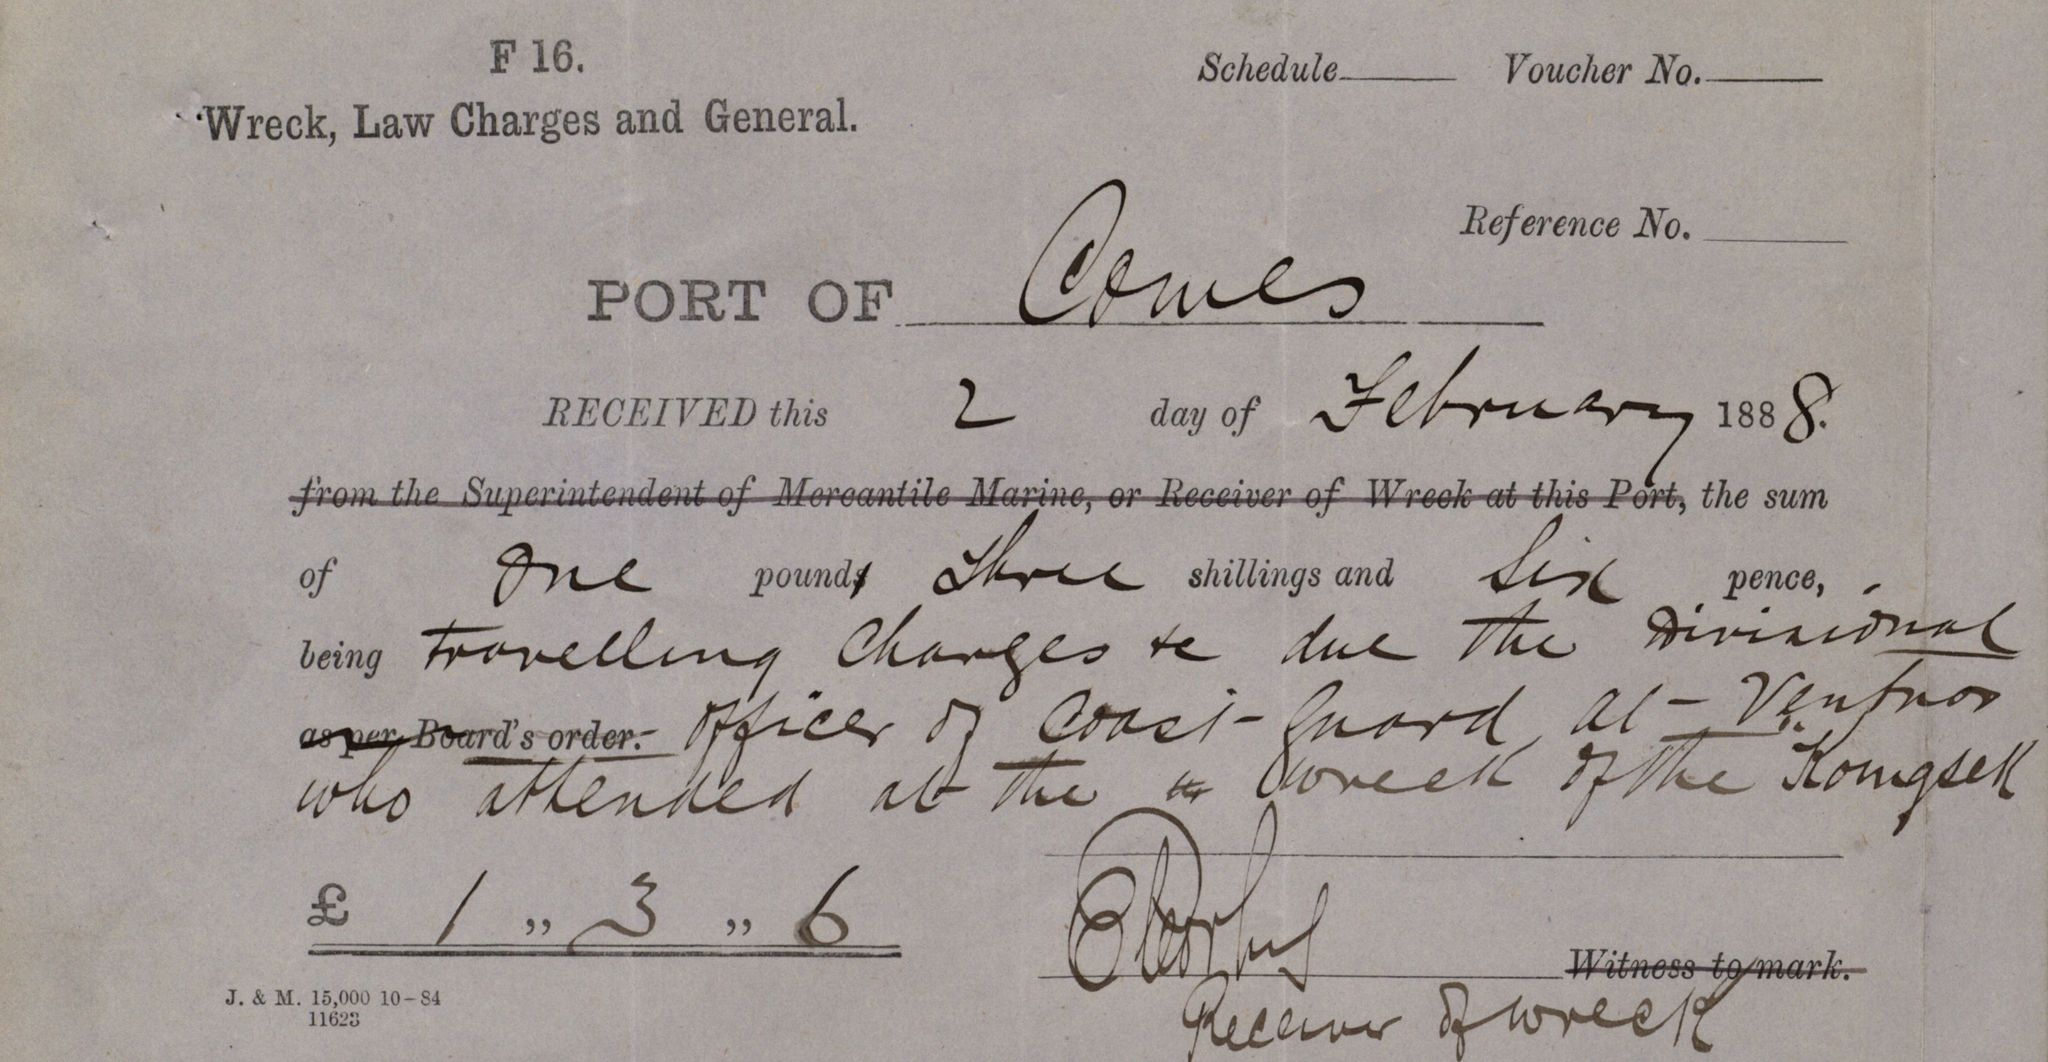 F 16.
Schedule Voucher No.
Wreck, Law Charges and General.
Reference No.
PORT OF Cowes
RECEIVED this 2 day of February 1888.
from the Superintendent of Mercantile Marine, or Receiver of Wreck at this Port, the sum
of One pounds three shillings and Six pence,
being travelling Charges &c due the Divisional
as per Board's order. Officer of Coast Guard at Ventnor
who attended at the wreck of the
£ 1 " 3 " 6
Witness to mark.
Receiver of Wreck
J. & M. 15,000 10-84
11623